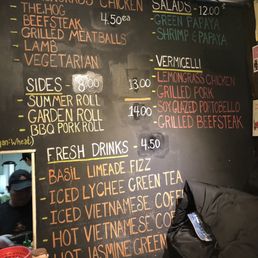 LEMONGRASS CHICKEN
THE HOG 4.50ea
BEEFSTEAK
GRILLED MEATBALLS
LAMB
VEGETARIAN
SIDES - 8.00
- SUMMER ROLL
- GARDEN ROLL
- BBQ PORK ROLL
SALADS - 12.00
- GREEN PAPAYA
- SHRIMP & PAPAYA
VERMICELLI
13.00
- LEMONGRASS CHICKEN
- GRILLED PORK
14.00
- SOY GLAZED PORTOBELLO
- GRILLED BEEFSTEAK
FRESH DRINKS - 4.50
- BASIL LIMEADE FIZZ
- ICED LYCHEE GREEN TEA
- ICED VIETNAMESE COFFEE
- HOT VIETNAMESE
- HOT JASMINE GREEN